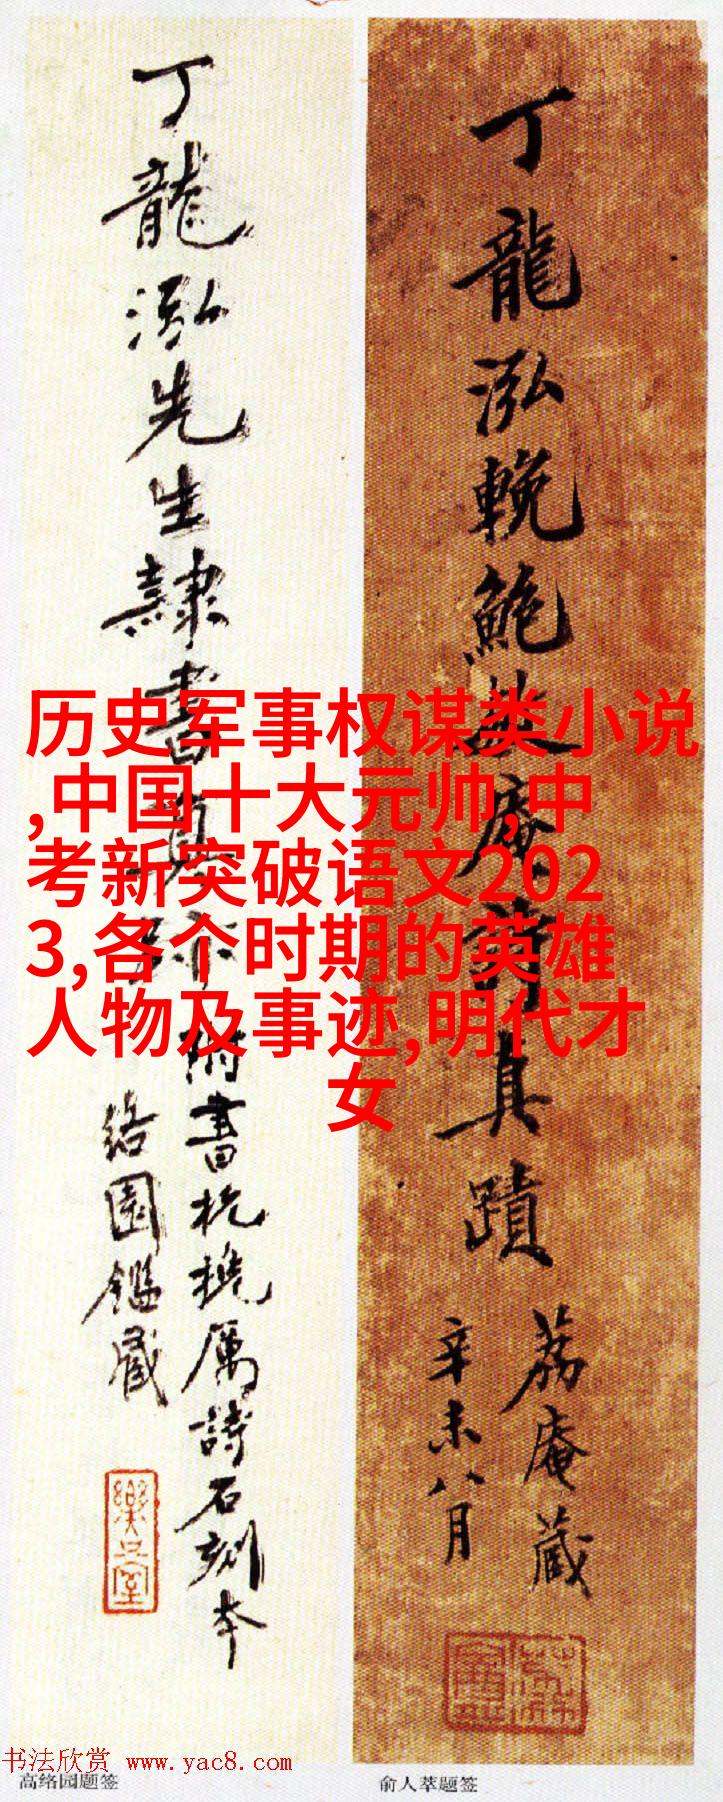 丁龍泓輓鮑美庵詩真蹟
荔庵藏
辛未八月
丁龍泓先生隸書真跡
附書杭揽厲詩石刻本
绤園鑑藏
历史军事权谋类小说
,中国十大元帅,中
考新突破语文202
3,各个时期的英雄
人物及事迹,明代才
女
书法欣赏 www.yac8.com
高络园题签
俞人萃题签